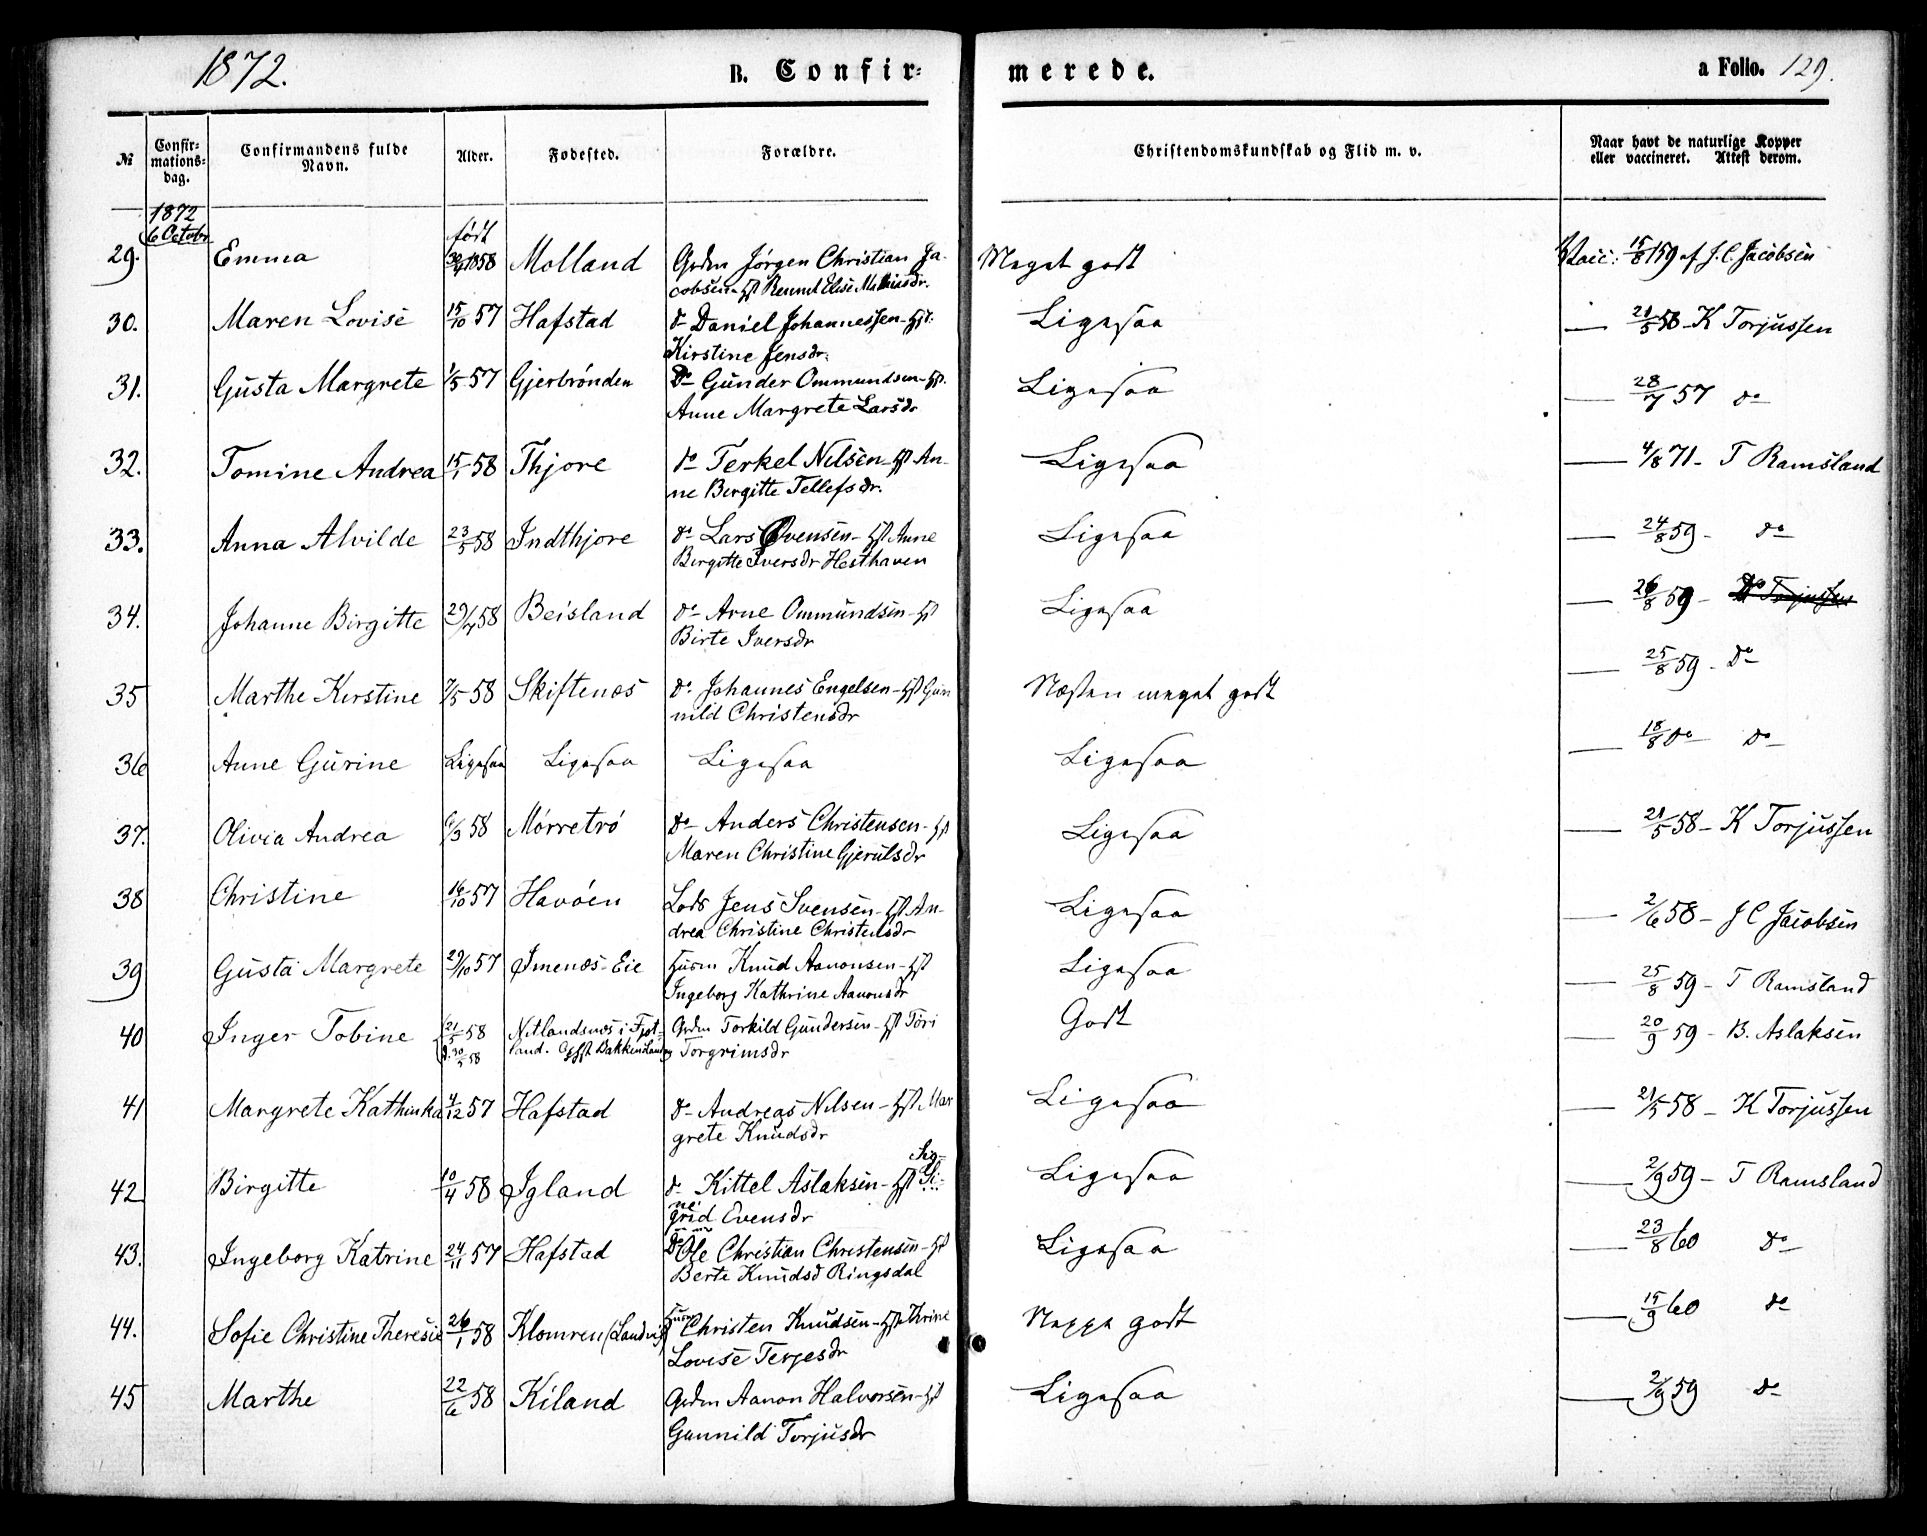 1872.
B. Confir-
merede.
a Folio. 129.
№
Confir-
mations-
dag.
Confirmandens fulde
Navn.
Alder.
Fødested.
Forældre.
Christendomskundskab og Flid m. v.
Naar havt de naturlige Kopper
eller vaccineret. Attest derom.
1872
6 Octobr
født
29. Emma 30/4 1858 Molland Grdm Jørgen Christian Ja- Meget godt Vacc: 15/8 159 af J. C. Jacobsen
cobsen - Hst Elise Mathiasdr.
30. Maren Lovise 15/10 57 Hafstad do Daniel Johannessen - Hst. Ligesaa — 21/5 58 - K Torjussen
Kirstine Jensdr.
31. Gusta Margrete 1/5 57 Gjerbrønden Do Gunder Ommundsen - Hst. Ligesaa — 28/7 57 do
Anne Margrete Larsdr
32. Tomine Andrea 15/1 58 Thjore do Terkel Nilsen - Hst An- Ligesaa — 4/8 71 - T Ramsland
ne Bergitte Tellefsdr.
33. Anna Alvilde 23/5 58 Indthjore do Lars Evensen - Hst Anne Ligesaa — 24/8 59 - do
Birgitte Iversdr Hesthaven
34. Johanne Birgitte 29/4 58 Beisland do Arne Ommundsen - Hst Ligesaa — 26/8 59 - Do Torjussen
Birte Iversdr
35 Marthe Kirstine 7/5 58 Skiftenæs do Johannes Engelsen - Hst Gun Næsten meget godt — 25/8 59 - Do
nild Christensdr
36 Anne Gurine Ligesaa Ligesaa Ligesaa Ligesaa — 18/8 do do
37. Olivia Andrea 6/3 58 Mørretrø Do Anders Christensen - Hst Ligesaa — 21/5 58 - K Torjussen
Maren Christine Gjerulsdr
38 Christine 16/10 57 Havøen Lods Jens Svensen - Hst An- Ligesaa — 2/6 58 - J C Jacobsen
drea Christine Christensdr
39 Gusta Margrete 29/10 57 Imenæs-Eie Husm Knud Aanonsen - Hst Ligesaa — 25/8 59 - T Ramsland
Ingeborg Kathrine Aanonsdr
40 Inger Tobine 21/5 58 Netlandsnæs i Fjot- Grdm Torkild Gundersen - Hst Tori Godt — 20/9 59 - B. Aslaksen
30/5 58 land. Opfst Bakken Landvig Torgrimsdr
41 Margrete Kathinka 4/12 57 Hafstad do Andreas Nilsen - Hst Mar Ligesaa — 21/5 58 - K Torjussen
grete Knudsdr
Sig-
42 Birgitte 10/4 58 Igland do Kittel Aslaksen - Hst Si- Ligesaa — 2/9 59 - T Ramsland
ne
grid Evensdr
43. Ingeborg Katrine 24/11 57 Hafstad Do Ole Christian Christensen - Hst Ligesaa — 23/8 60 Do
Berte Knudsd Ringsdal
44. Sofie Christine Theresie 26/1 58 Klomren (Landvig) Husm Christen Knudsen - Hst Thrine Neppe godt — 15/9 60 do
Lovise Terjesdr
45 Marthe 22/6 58 Kiland Grdm Aanon Halvorsen - Hst Ligesaa — 2/9 59 do
Gunnild Torjusdr